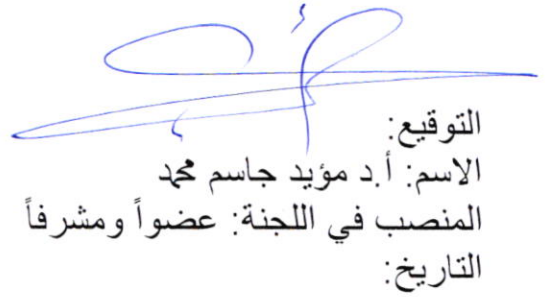 التوقيع:
الاسم: أ.د مؤيد جاسم محمد
المنصب في اللجنة: عضواً ومشرفاً
التاريخ: